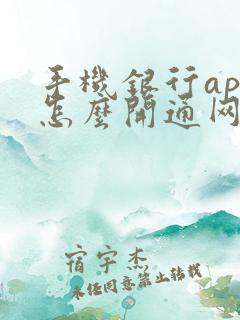 手機銀行ap
怎麼開通网
宿宇杰
未任同意禁止转载